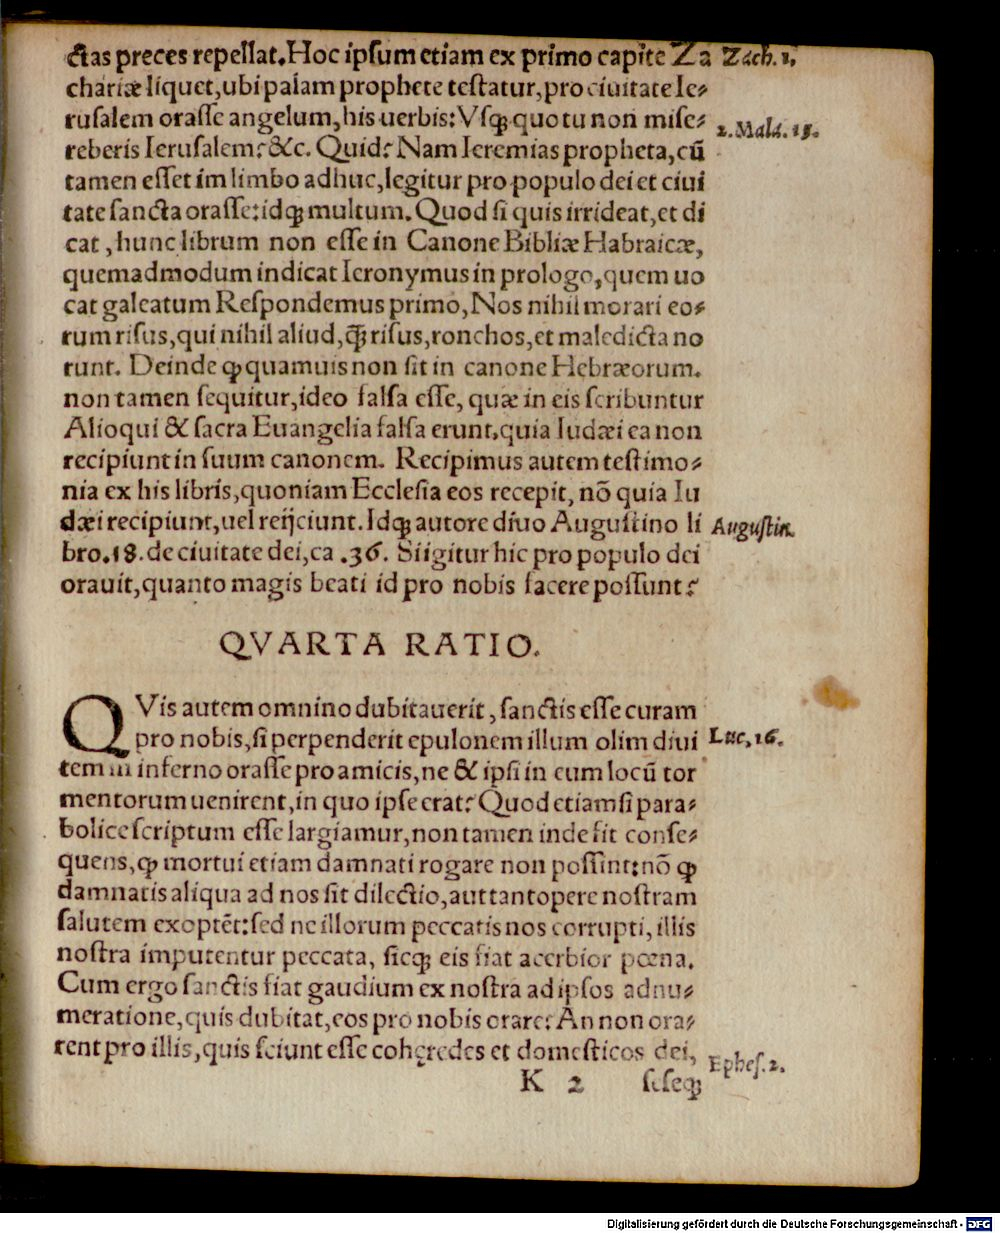 ctas preces repellat. Hoc ipsum etiam ex primo capite Za
Zach. 1.
chariæ liquet, ubi palam prophete testatur, pro ciuitate Ie⸗
rusalem orasse angelum, his uerbis: Vsqꝫ quo tu non mise⸗
2. Mala. 15.
reberis Ierusalem? &c. Quid? Nam Ieremias propheta, cū
tamen esset im limbo adhuc, legitur pro populo dei et ciui
tate sancta orasse: idqꝫ multum. Quod si quis irrideat, et di
cat, hunc librum non esse in Canone Bibliæ Habraicæ,
quemadmodum indicat Ieronymus in prologo, quem uo
cat galeatum Respondemus primo, Nos nihil morari eo⸗
rum risus, qui nihil aliud, q̄ꝫ risus, ronchos, et maledicta no
runt. Deinde ꝙ quamuis non sit in canone Hebræorum.
non tamen sequitur, ideo falsa esse, quæ in eis scribuntur
Alioqui & sacra Euangelia falsa erunt. quia Iudæi ea non
recipiunt in suum canonem. Recipimus autem testimo⸗
nia ex his libris, quoniam Ecclesia eos recepit, nō quia Iu
dæi recipiunt, uel reijciunt. Idqꝫ autore diuo Augustino li
Augustin.
bro. 18. de ciuitate dei, ca. 36. Si igitur hic pro populo dei
orauit, quanto magis beati id pro nobis facere possunt?
QVARTA RATIO.
QVis autem omnino dubitauerit, sanctis esse curam
pro nobis, si perpenderit epulonem illum olim diui
Luc. 16.
tem in inferno orasse pro amicis, ne & ipsi in eum locū tor
mentorum uenirent, in quo ipse erat? Quod etiamsi para⸗
bolice scriptum esse largiamur, non tamen inde sit conse⸗
quens, ꝙ mortui etiam damnati rogare non possint: nō ꝙ
damnatis aliqua ad nos sit dilectio, aut tantopere nostram
salutem exoptēt: sed ne illorum peccatis nos corrupti, illis
nostra imputentur peccata, sicqꝫ eis fiat acerbior pœna.
Cum ergo sanctis fiat gaudium ex nostra ad ipsos adnu⸗
meratione, quis dubitat, eos pro nobis orare? An non ora⸗
rent pro illis, quis sciunt esse cohęredes et domesticos dei,
Ephes. 2.
K 2 seseqꝫ
Digitalisierung gefördert durch die Deutsche Forschungsgemeinschaft - DFG